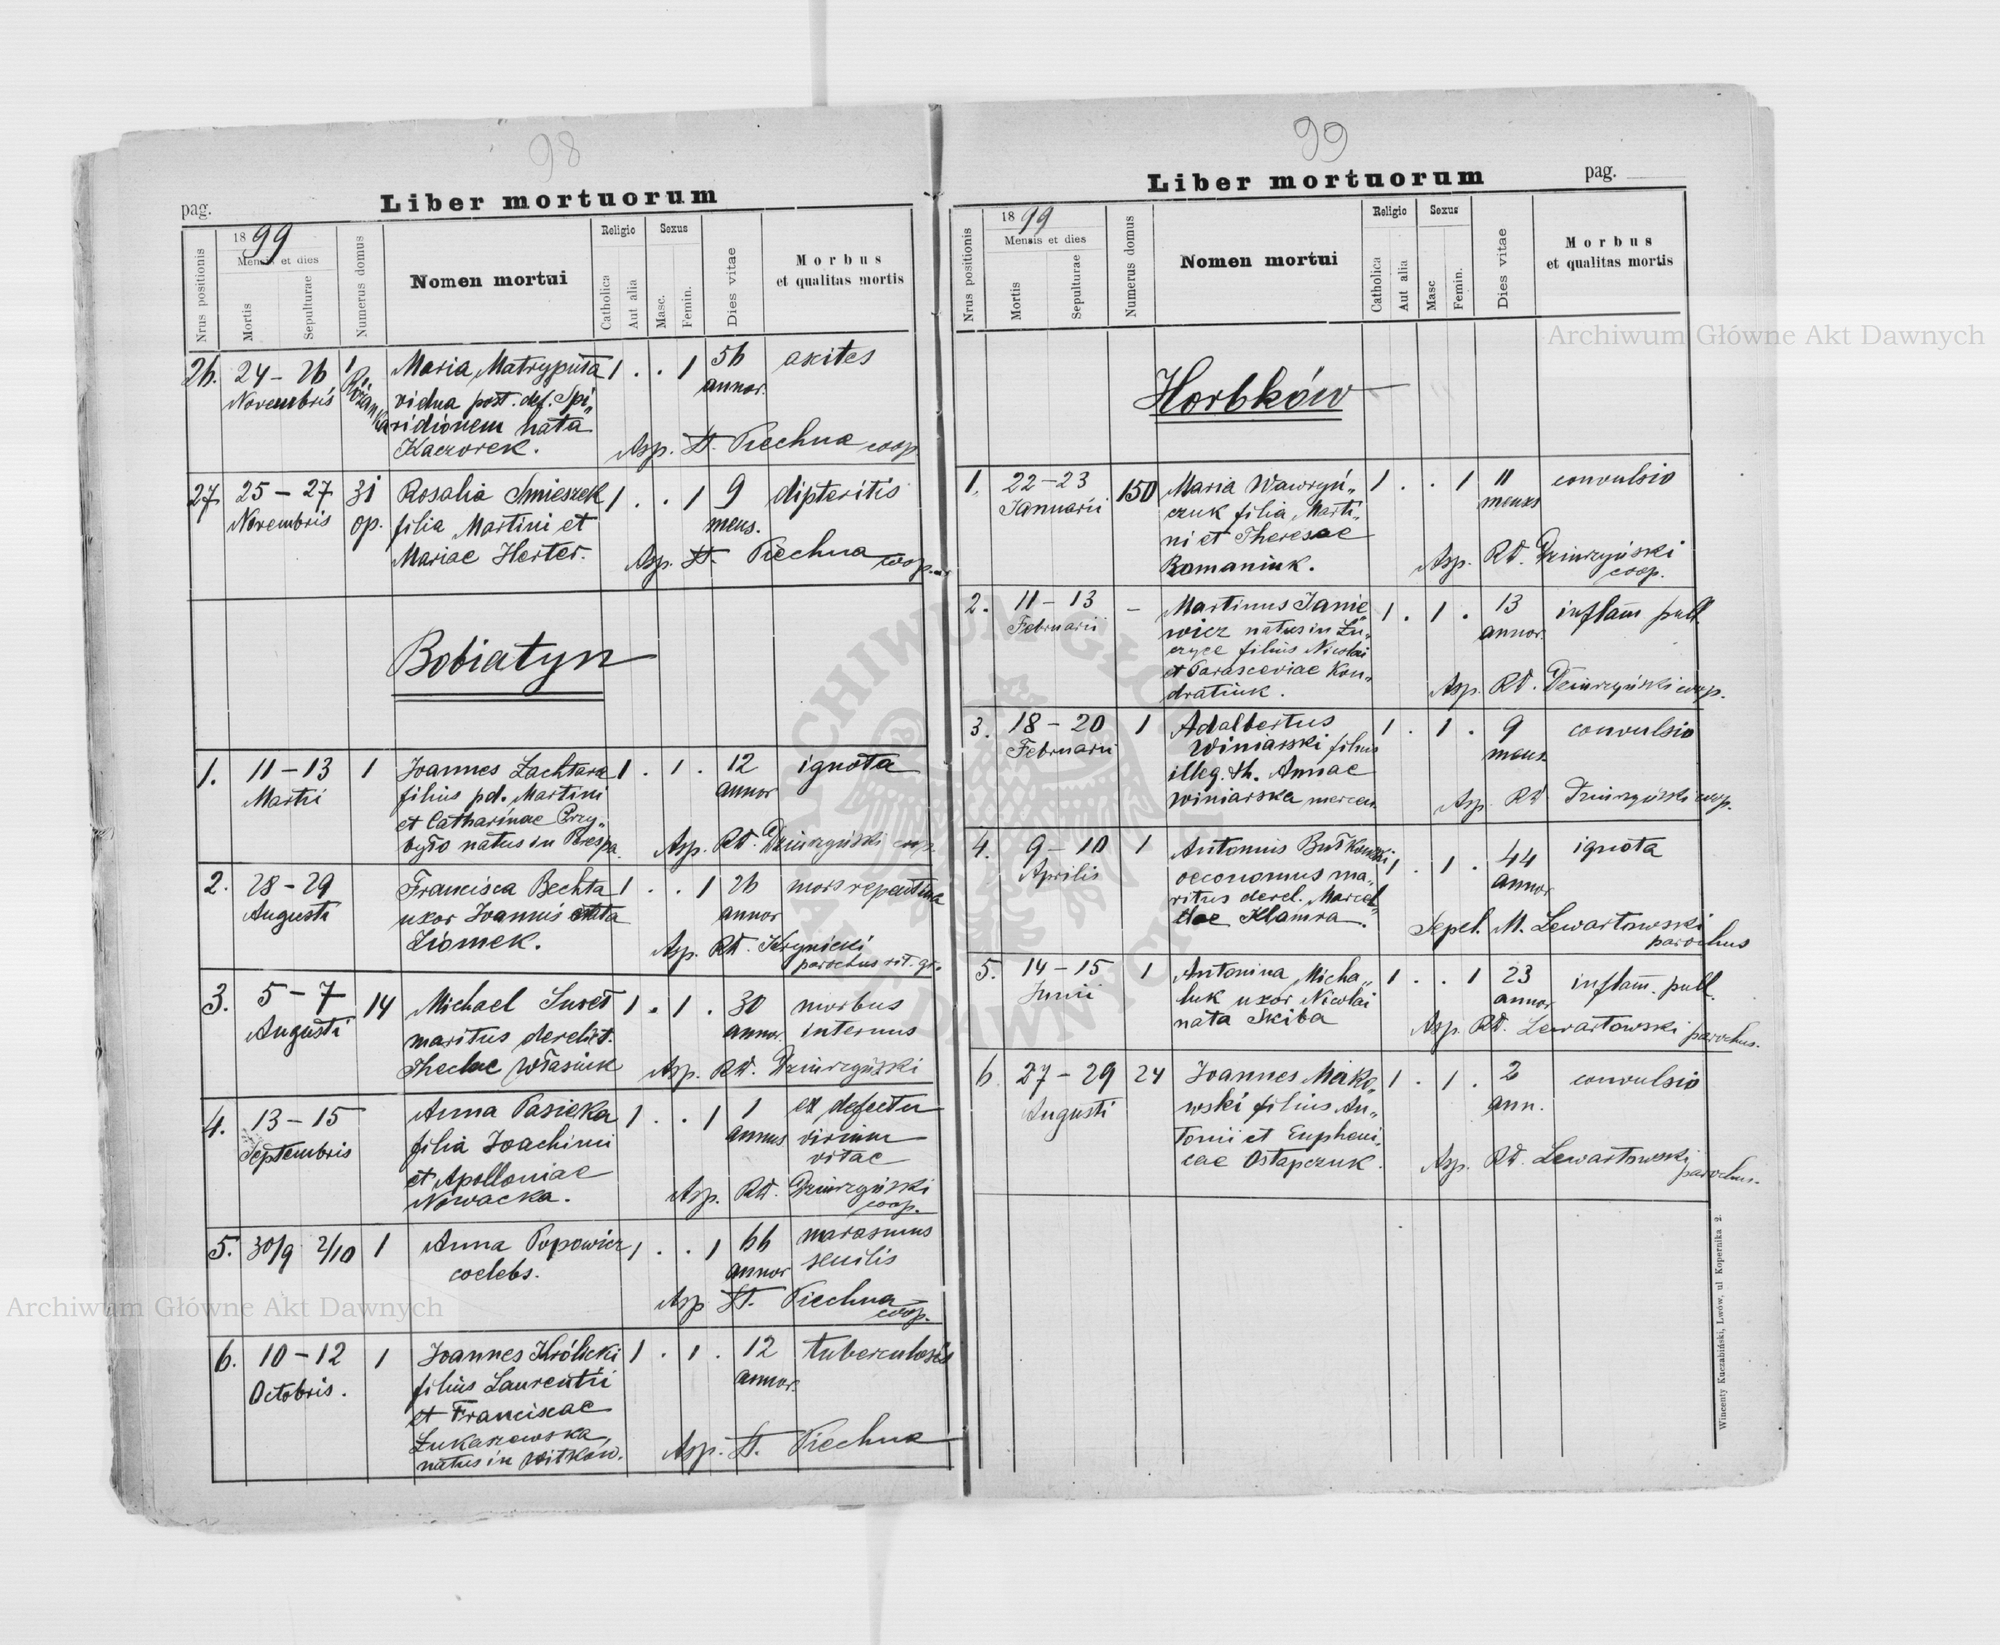 98
pag.
Liber mortuorum
Nrus positionis
1899
Mensis et dies
Mortis
Sepulturae
Numerus domus
Nomen mortui
Religio
Catholica
Aut alia
Sexus
Masc.
Femin.
Dies vitae
Morbus
et qualitas mortis
26. 24 - 26 1 Maria Matryputa 1 . . 1 56 axites
Novembris vidua post. def. Spi„ annor.
ridionem nata
Kaczorek. Asp. St. Piechna coop.
27. 25 - 27 31 Rosalia Smieszek 1 . . 1 9 dipteritis
Novembris op. filia Martini et mens.
Mariae Herter. Asp. St. Piechna coop.
Bobiatyn
1. 11 - 13 1 Joannes Zachtara 1 . 1 . 12 ignota
Martii filius pd. Martini annor
et Catharinae Przy„
było natus in Perespa. Asp. Rd. Dziurzyński coop.
2. 28 - 29 Francisca Bechta 1 . . 1 26 mors repentina
Augusti uxor Joannis nata annor
Ziomek. Asp. Rd. Krynicki
parochus rit. gr.
3. 5 - 7 14 Michael Suset 1 . 1 . 30 morbus
Augusti maritus derelict. annor. internus
Theclae Własiuk Asp. Rd. Dziurzyński
4. 13 - 15 Anna Pasieka 1 . . 1 1 ex defectu
Septembris filia Joachimi annus virium
et Apolloniae vitae
Nowacka. Asp. Rd. Dziurzyński
coop.
5. 30/9 2/10 1 Anna Popowicz 1 . . 1 66 marasmus
coelebs. annor senilis
Asp St. Piechna
coop.
6. 10 - 12 1 Joannes Królicki 1 . 1 . 12 tuberculosis
Octobris. filius Laurentii annor.
et Franciscae
Łukaszewska,
natus in Witków. Asp. St. Piechna
99
Liber mortuorum
pag.
Nrus positionis
1899
Mensis et dies
Mortis
Sepulturae
Numerus domus
Nomen mortui
Religio
Catholica
Aut alia
Sexus
Masc
Femin.
Dies vitae
Morbus
et qualitas mortis
Horbków
1. 22 - 23 150 Maria Wawryń„ 1 . . 1 11 convulsio
Januarii czuk filia Marti„ menses
ni et Theresae
Romaniuk. Asp. Rd. Dziurzyński
coop.
2. 11 - 13 - Martinus Janie„ 1 . 1 . 13 inflam pull
Februarii wicz natus in Żu„ annor.
czyce filius Nicolai
et Parasceviae Kon„
dratiuk. Asp. Rd. Dziurzyński coop.
3. 18 - 20 1 Adalbertus 1 . 1 . 9 convulsio
Februarii Winiarski filius mens.
illeg. th. Annae
Winiarska mercen. Asp. Rd Dziurzyński coop.
4. 9 - 10 1 Antonius Bułkowski 1 . 1 . 44 ignota
Aprilis oeconomus ma„ annor
ritus derel. Marcel„
lae Klamra. Sepel. M. Lewartowski
parochus
5. 14 - 15 1 Antonina Micha„ 1 . . 1 23 inflam. pull.
Junii luk uxor Nicolai annor
nata Skiba Asp. Rd. Lewartowski parochus.
6 27 - 29 24 Joannes Mako„ 1 . 1 . 2 convulsio
Augusti wski filius An„ ann.
tonii et Euphemi„
eae Ostapczuk. Asp. Rd. Lewartowski
parochus.
Wincenty Kuczabiński, Lwów, ul Kopernika 2.
Archiwum Główne Akt Dawnych
Archiwum Główne Akt Dawnych